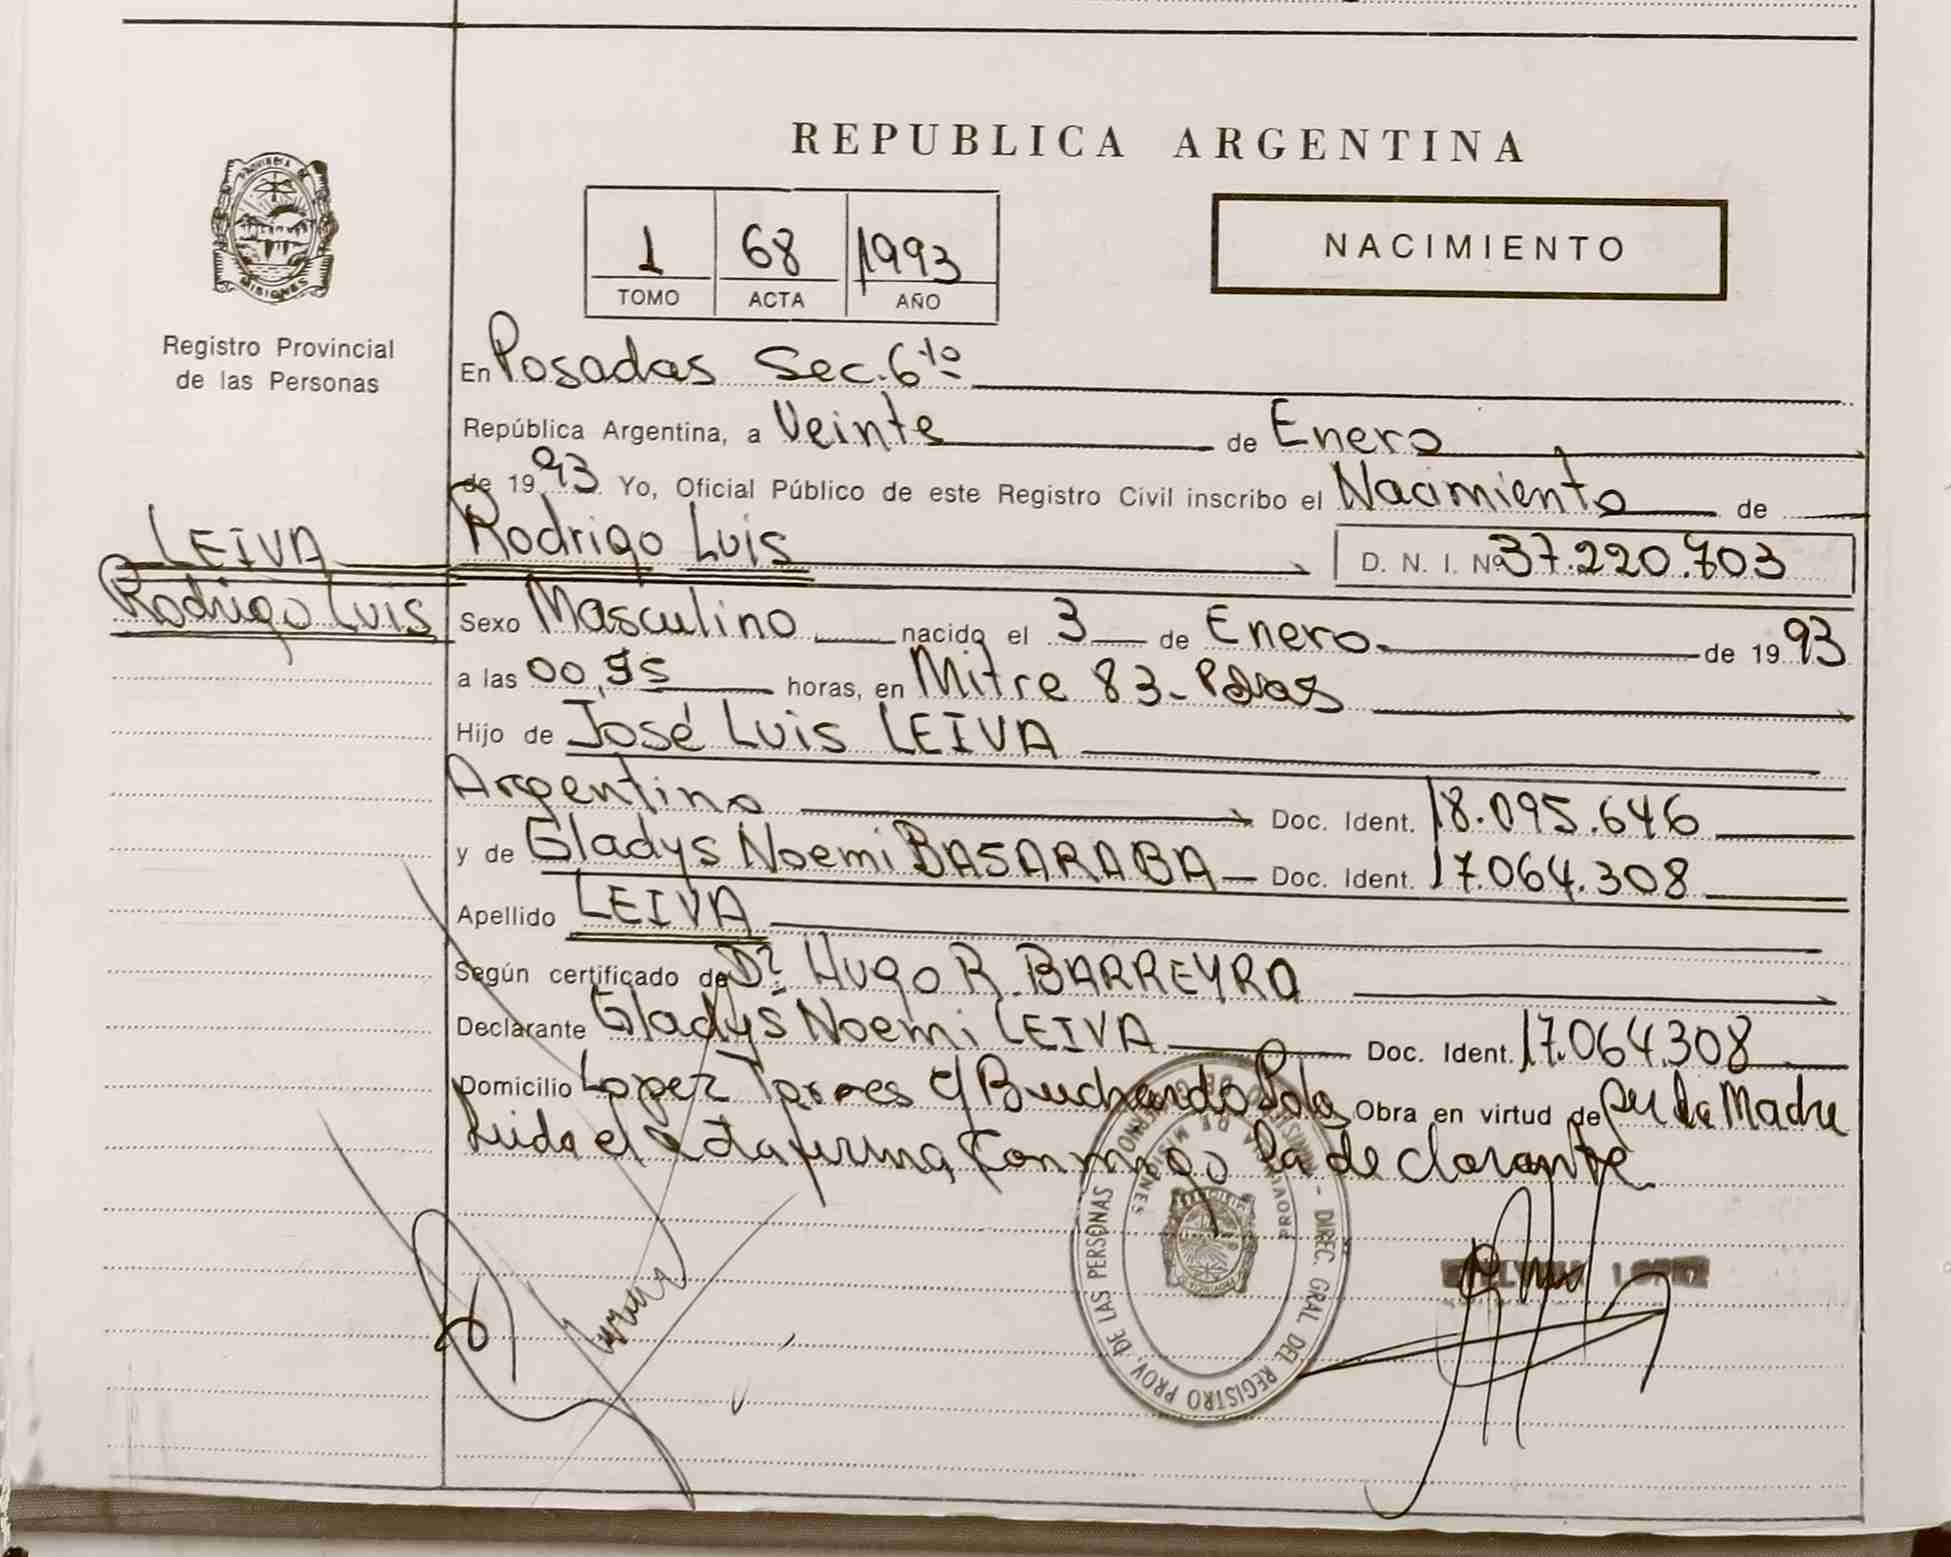 REPUBLICA ARGENTINA
PROVINCIA DE
MISIONES
Registro Provincial
de las Personas
1 68 1993
TOMO ACTA AÑO
NACIMIENTO
En Posadas Sec. 6ta
República Argentina, a Veinte de Enero
de 1993 Yo, Oficial Público de este Registro Civil inscribo el Nacimiento de
LEIVA
Rodrigo Luis
Rodrigo Luis D. N. I. Nº 37.220.703
Sexo Masculino nacido el 3 de Enero de 1993
a las 00,55 horas, en Mitre 83- Pdas
Hijo de José Luis LEIVA
Argentino Doc. Ident. 18.095.646
y de Gladys Noemi BASARABA Doc. Ident. 17.064.308
Apellido LEIVA
Según certificado de Dr. Hugo R. BARREYRO
Declarante Gladys Noemi LEIVA Doc. Ident. 17.064.308
Domicilio Lopez Torres c/ Buchardo Pdas Obra en virtud de ser la Madre
Leida el acta firma conmigo la declarante
DIREC. GRAL. DEL REGISTRO PROV. DE LAS PERSONAS
PROVINCIA DE MISIONES